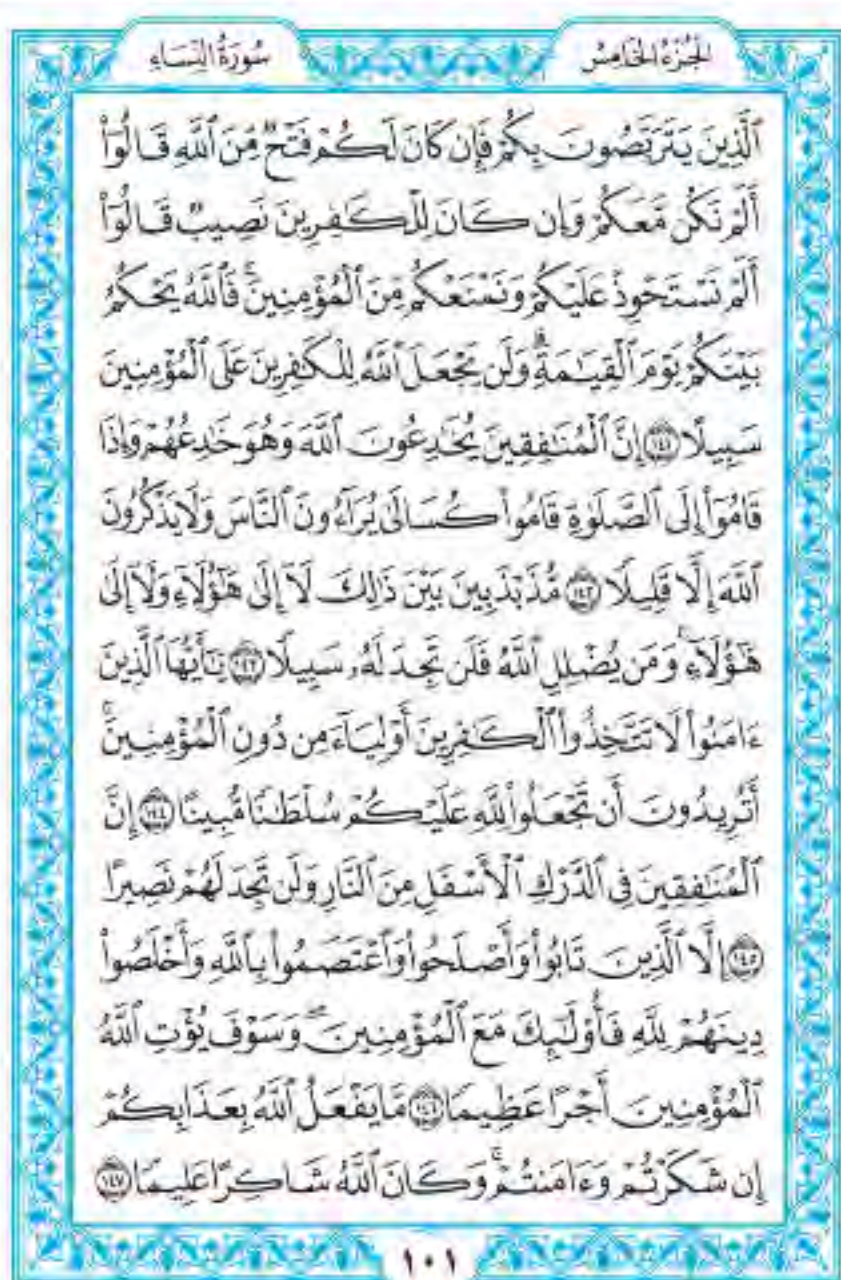 الجزء الخامس
سورة النساء
ٱلَّذِينَ يَتَرَبَّصُونَ بِكُمْ فَإِن كَانَ لَكُمْ فَتْحٌ مِّنَ ٱللَّهِ قَالُوٓا۟
أَلَمْ نَكُن مَّعَكُمْ وَإِن كَانَ لِلْكَٰفِرِينَ نَصِيبٌ قَالُوٓا۟
أَلَمْ نَسْتَحْوِذْ عَلَيْكُمْ وَنَمْنَعْكُم مِّنَ ٱلْمُؤْمِنِينَ ۚ فَٱللَّهُ يَحْكُمُ
بَيْنَكُمْ يَوْمَ ٱلْقِيَٰمَةِ ۗ وَلَن يَجْعَلَ ٱللَّهُ لِلْكَٰفِرِينَ عَلَى ٱلْمُؤْمِنِينَ
سَبِيلًا ١٤١ إِنَّ ٱلْمُنَٰفِقِينَ يُخَٰدِعُونَ ٱللَّهَ وَهُوَ خَٰدِعُهُمْ وَإِذَا
قَامُوٓا۟ إِلَى ٱلصَّلَوٰةِ قَامُوا۟ كُسَالَىٰ يُرَآءُونَ ٱلنَّاسَ وَلَا يَذْكُرُونَ
ٱللَّهَ إِلَّا قَلِيلًا ١٤٢ مُّذَبْذَبِينَ بَيْنَ ذَٰلِكَ لَآ إِلَىٰ هَٰٓؤُلَآءِ وَلَآ إِلَىٰ
هَٰٓؤُلَآءِ ۚ وَمَن يُضْلِلِ ٱللَّهُ فَلَن تَجِدَ لَهُۥ سَبِيلًا ١٤٣ يَٰٓأَيُّهَا ٱلَّذِينَ
ءَامَنُوا۟ لَا تَتَّخِذُوا۟ ٱلْكَٰفِرِينَ أَوْلِيَآءَ مِن دُونِ ٱلْمُؤْمِنِينَ ۚ
أَتُرِيدُونَ أَن تَجْعَلُوا۟ لِلَّهِ عَلَيْكُمْ سُلْطَٰنًا مُّبِينًا ١٤٤ إِنَّ
ٱلْمُنَٰفِقِينَ فِى ٱلدَّرْكِ ٱلْأَسْفَلِ مِنَ ٱلنَّارِ وَلَن تَجِدَ لَهُمْ نَصِيرًا
١٤٥ إِلَّا ٱلَّذِينَ تَابُوا۟ وَأَصْلَحُوا۟ وَٱعْتَصَمُوا۟ بِٱللَّهِ وَأَخْلَصُوا۟
دِينَهُمْ لِلَّهِ فَأُو۟لَٰٓئِكَ مَعَ ٱلْمُؤْمِنِينَ ۖ وَسَوْفَ يُؤْتِ ٱللَّهُ
ٱلْمُؤْمِنِينَ أَجْرًا عَظِيمًا ١٤٦ مَّا يَفْعَلُ ٱللَّهُ بِعَذَابِكُمْ
إِن شَكَرْتُمْ وَءَامَنتُمْ ۚ وَكَانَ ٱللَّهُ شَاكِرًا عَلِيمًا ١٤٧
١٠١